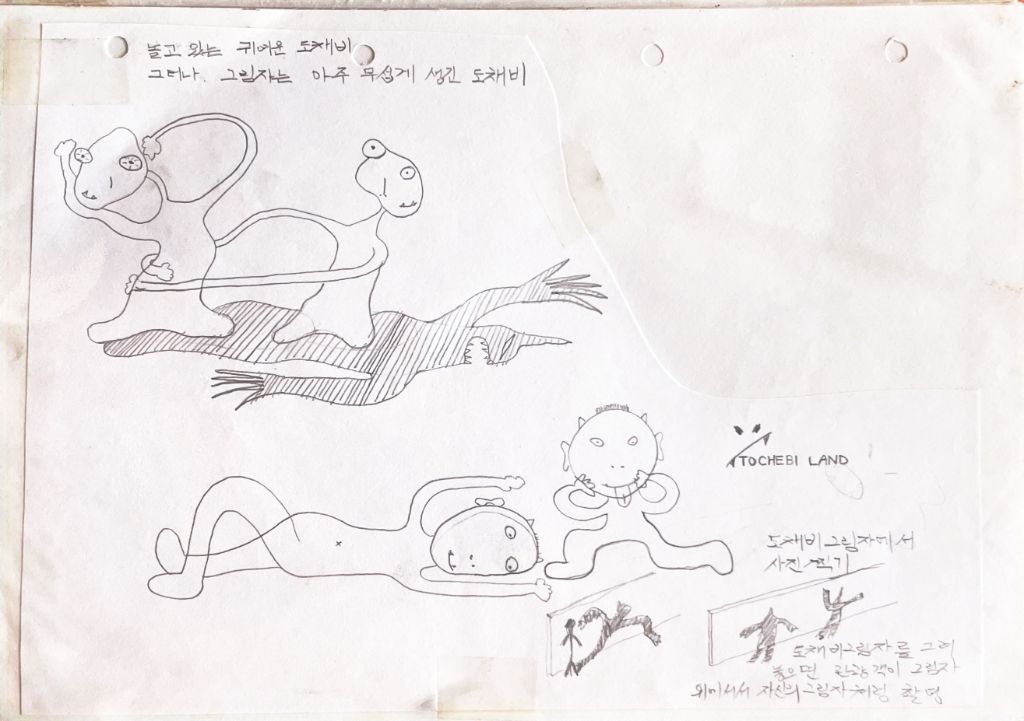 놀고 있는 귀여운 도채비
그러나, 그림자는 아주 무섭게 생긴 도채비
TOCHEBI LAND
도채비그림자에서
사진찍기
도채비그림자를 그려
놓으면 관광객이 그림자
위에서서 자신의 그림자처럼 촬영